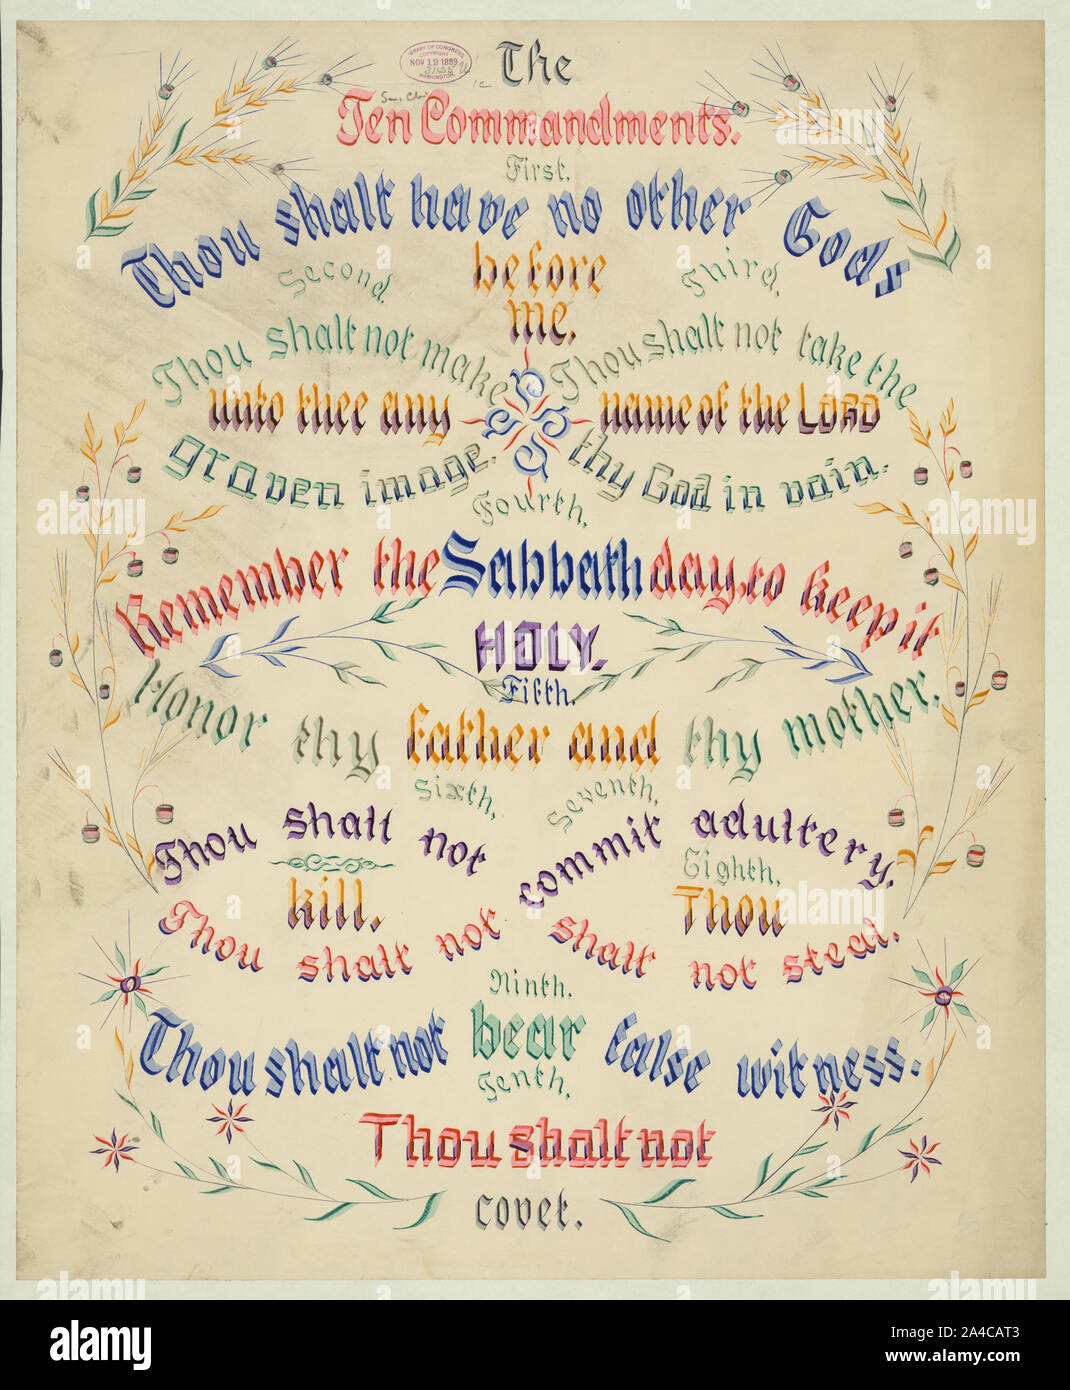 LIBRARY OF CONGRESS
COPYRIGHT
NOV 12 1889
WASHINGTON
The
Ten Commandments.
First.
Thou shalt have no other Gods
before
me.
Second.
Thou shalt not make
unto thee any
graven image.
Third.
Thou shalt not take the
name of the LORD
thy God in vain.
Fourth.
Remember the Sabbath day, to keep it
HOLY.
Fifth.
Honor thy father and thy mother.
Sixth,
Thou shalt not
kill.
Seventh,
Thou shalt not commit adultery.
Eighth,
Thou
shalt not steal.
Ninth.
Thou shalt not bear false witness.
Tenth,
Thou shalt not
covet.
alamy
alamy
Image ID: 2A4CAT3
www.alamy.com